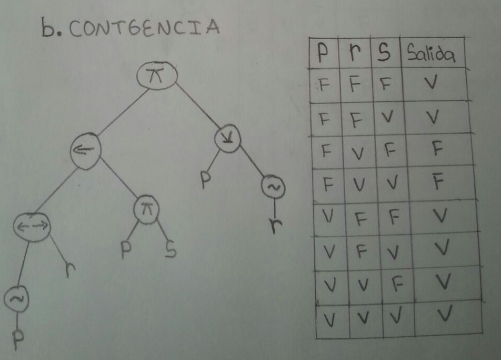 b. CONTGENCIA
π
←
↓
P
~
r
←→
π
r
P
S
~
P
P r S Salida
F F F V
F F V V
F V F F
F V V F
V F F V
V F V V
V V F V
V V V V